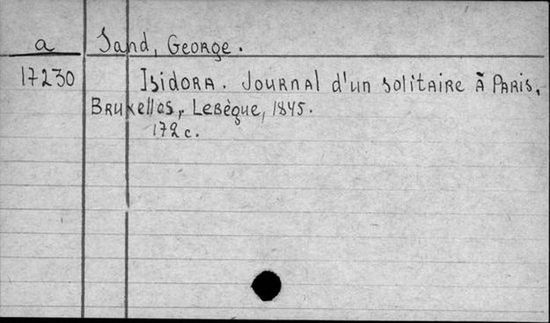 a Sand, George.
17230 Isidora. Journal d'un solitaire à Paris,
Bruxelles, Lebègue, 1845.
172 c.